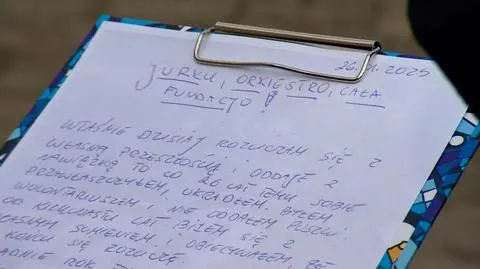 26.01.2025
JURKU, ORKIESTRO, CAŁA
FUNDACJO!
WŁAŚNIE DZISIAJ ROZLICZAM SIĘ Z
WŁASNĄ PRZESZŁOŚCIĄ I ODDAJĘ Z
NAWIĄZKĄ TO CO 26 LAT TEMU SOBIE
PRZYWŁASZCZYŁEM, UKRADŁEM. BYŁEM
WOLONTARIUSZEM I NIE ODDAŁEM PUSZKI.
OD KILKUNASTU LAT BIJĘM SIĘ Z
WŁASNYM SUMIENIEM I OBIECYWAŁEM, ŻE
W KOŃCU SIĘ ROZLICZĘ.
ROK